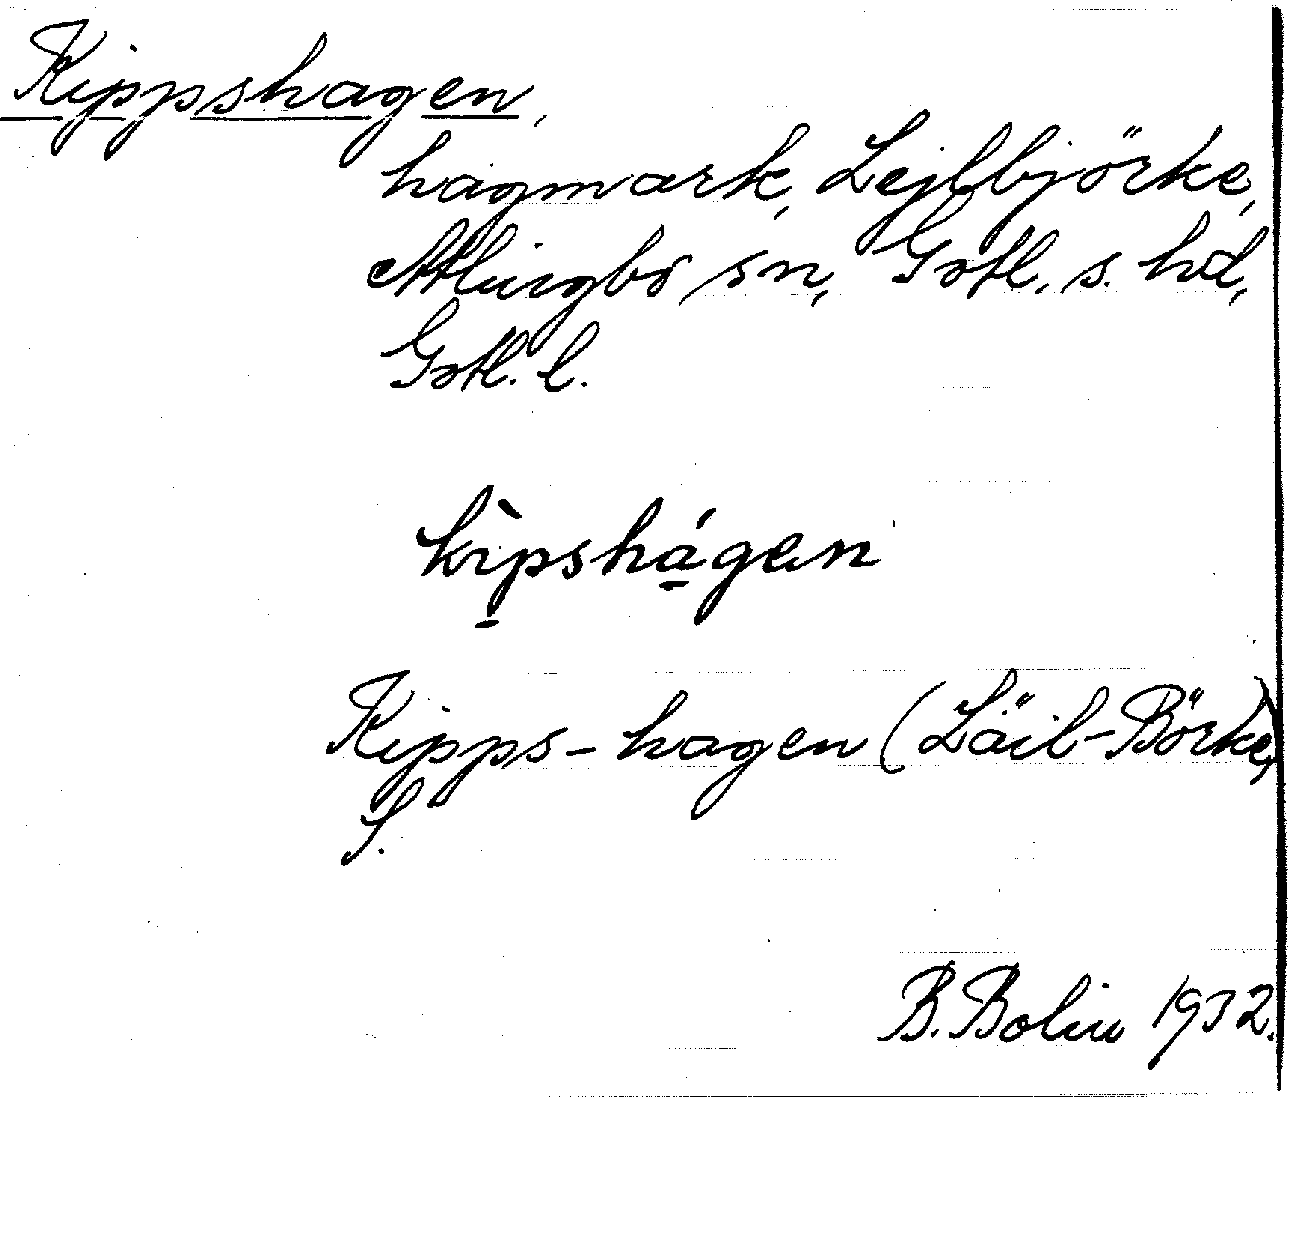 Kippshagen,
hagmark, Lejlbjörke,
Atlingbo sn, Gotl. s. hd,
Gotl. l.
kìpshágen
Kipps-hagen (Läil-Börke),
S.
B. Bolin 1932.